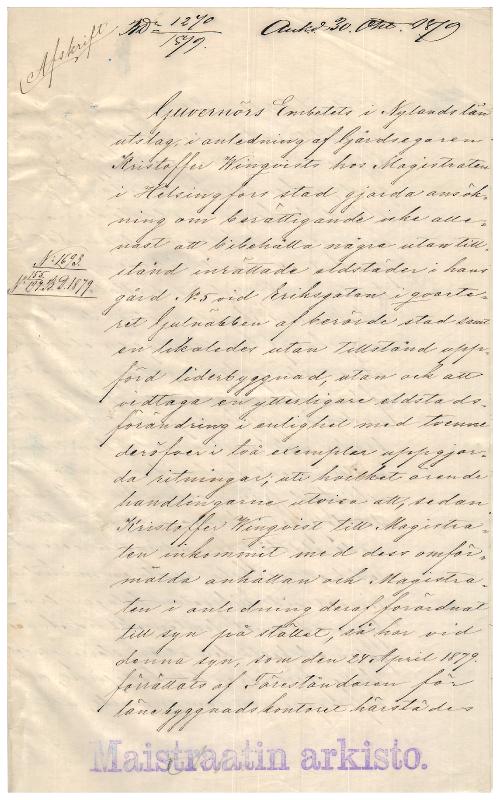 Afskrift
KD: 1270
1879.
Ank. d. 30. Okt. 1879
Guvernörs Embetets i Nylands län
utslag, i anledning af Gårdsegaren
Kristoffer Wingvists hos Magistraten
i Helsingfors stad gjorda ansök-
ning om berättigande icke alle-
nast att bibehålla några utan till-
stånd inrättade eldstäder i hans
gård No 5 vid Eriksgatan i qvarte-
ret Gulnäbben af berörde stad samt
en likaledes utan tillstånd upp-
förd liderbyggnad, utan och att
vidtaga en ytterligare eldstads-
förändring i enlighet med tvenne
deröfver i två exemplar uppgjor-
da ritningar; uti hvilket ärende
handlingarne utvisa att, sedan
Kristoffer Wingvist till Magistra-
ten inkommit med dess omför-
mälda anhållan och Magistra-
ten i anledning deraf förordnat
till syn på stället, så har vid
denna syn, som den 24 April 1879
förrättats af Föreståndaren för
länebyggnadskontoret härstädes
No 1693.
155
B. D. 1879.
Maistraatin arkisto.